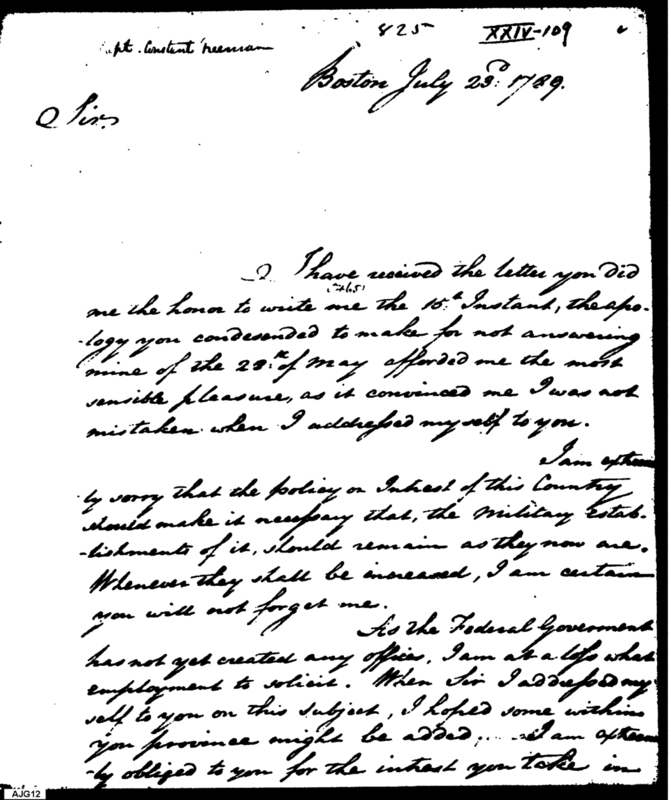 Capt. Constant Freeman
825 XXIV-109
Boston July 23.d 1789.
Sir,
I have received the letter you did
(465)
me the honor to write me the 15.th Instant, the apo-
-logy you condesended to make for not answering
mine of the 28.th of May afforded me the most
sensible pleasure, as it convinced me I was not
mistaken when I addressed myself to you.
I am extreem
ly sorry that the policy or Intrest of this Country
should make it necessary that, the Military estab-
-lishments of it, should remain as they now are.
Whenever they shall be increased, I am certain
you will not forget me.
As the Federal Goverment
has not yet created any offices, I am at a loss what
employment to solicit. When Sir I addressed my
self to you on this subject, I hoped some within
you province might be added, I am extreem
-ly obliged to you for the intrest you take in
AJG12